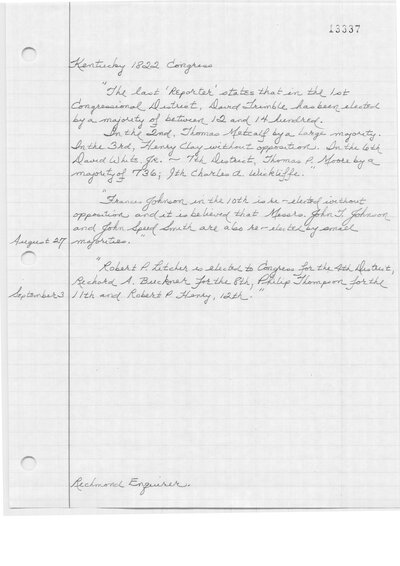 13337
Kentucky 1822 Congress
"The last 'Reporter' states that in the 1st
Congressional District, David Trimble has been elected
by a majority of between 12 and 14 hundred.
In the 2nd, Thomas Metcalf by a large majority.
In the 3rd, Henry Clay without opposition. In the 6th
David White, Jr. ~ 7th District, Thomas P. Moore by a
majority of 736; 9th Charles A. Wickliffe."
"Francis Johnson in the 10th is re-elected without
opposition and it is believed that Messrs. John T. Johnson
and John Speed Smith are also re-elected by small
August 27 majorities."
"Robert P. Letcher is elected to Congress for the 4th District,
Richard A. Buckner for the 8th, Philip Thompson for the
September 3 11th and Robert P. Henry, 12th."
Richmond Enquirer.